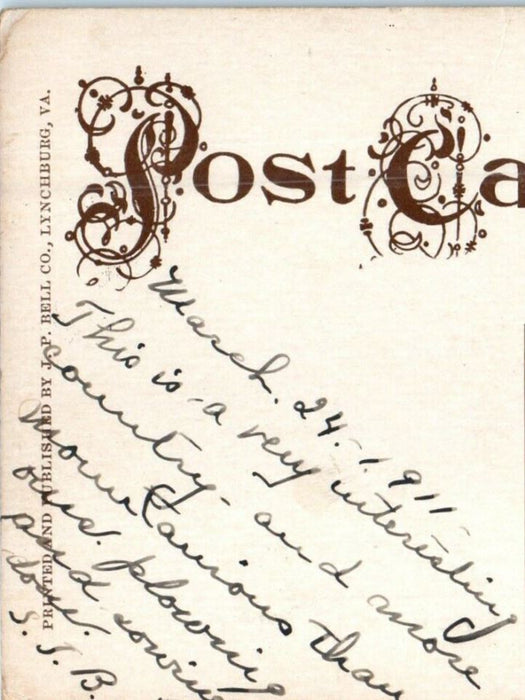 Post Ca
PRINTED AND PUBLISHED BY J. P. BELL CO., LYNCHBURG, VA.
March. 24. 1911-
This is a very interesting
country - and more
mountainous than
ours. plowing
and sowing
now.
S. J. B.